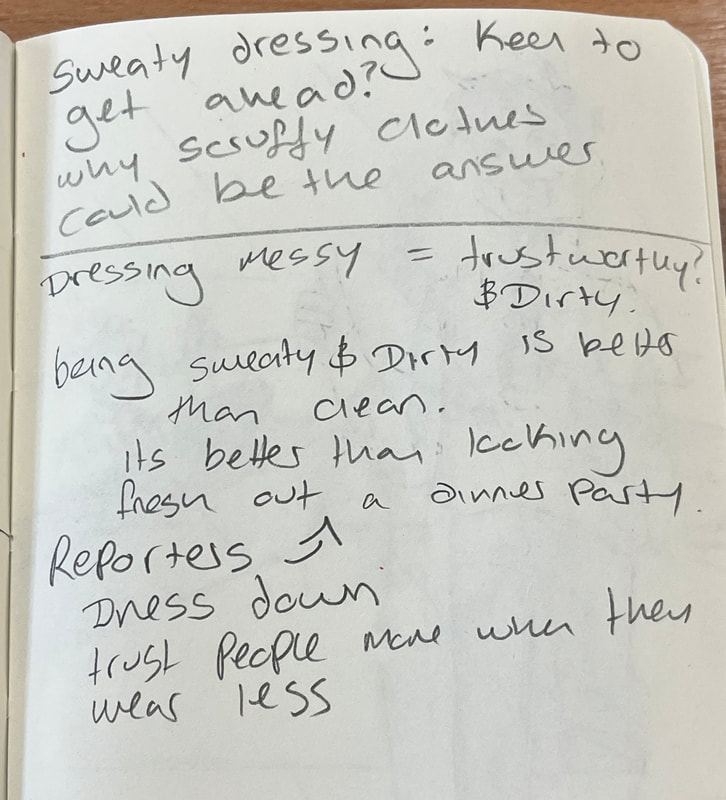 Sweaty dressing: Keen to
get ahead?
why scruffy clothes
could be the answer
Dressing messy = trustworthy?
& Dirty.
being sweaty & Dirty is better
than clean.
its better than looking
fresh out a dinner party.
Reporters
Dress down
trust people more when they
wear less